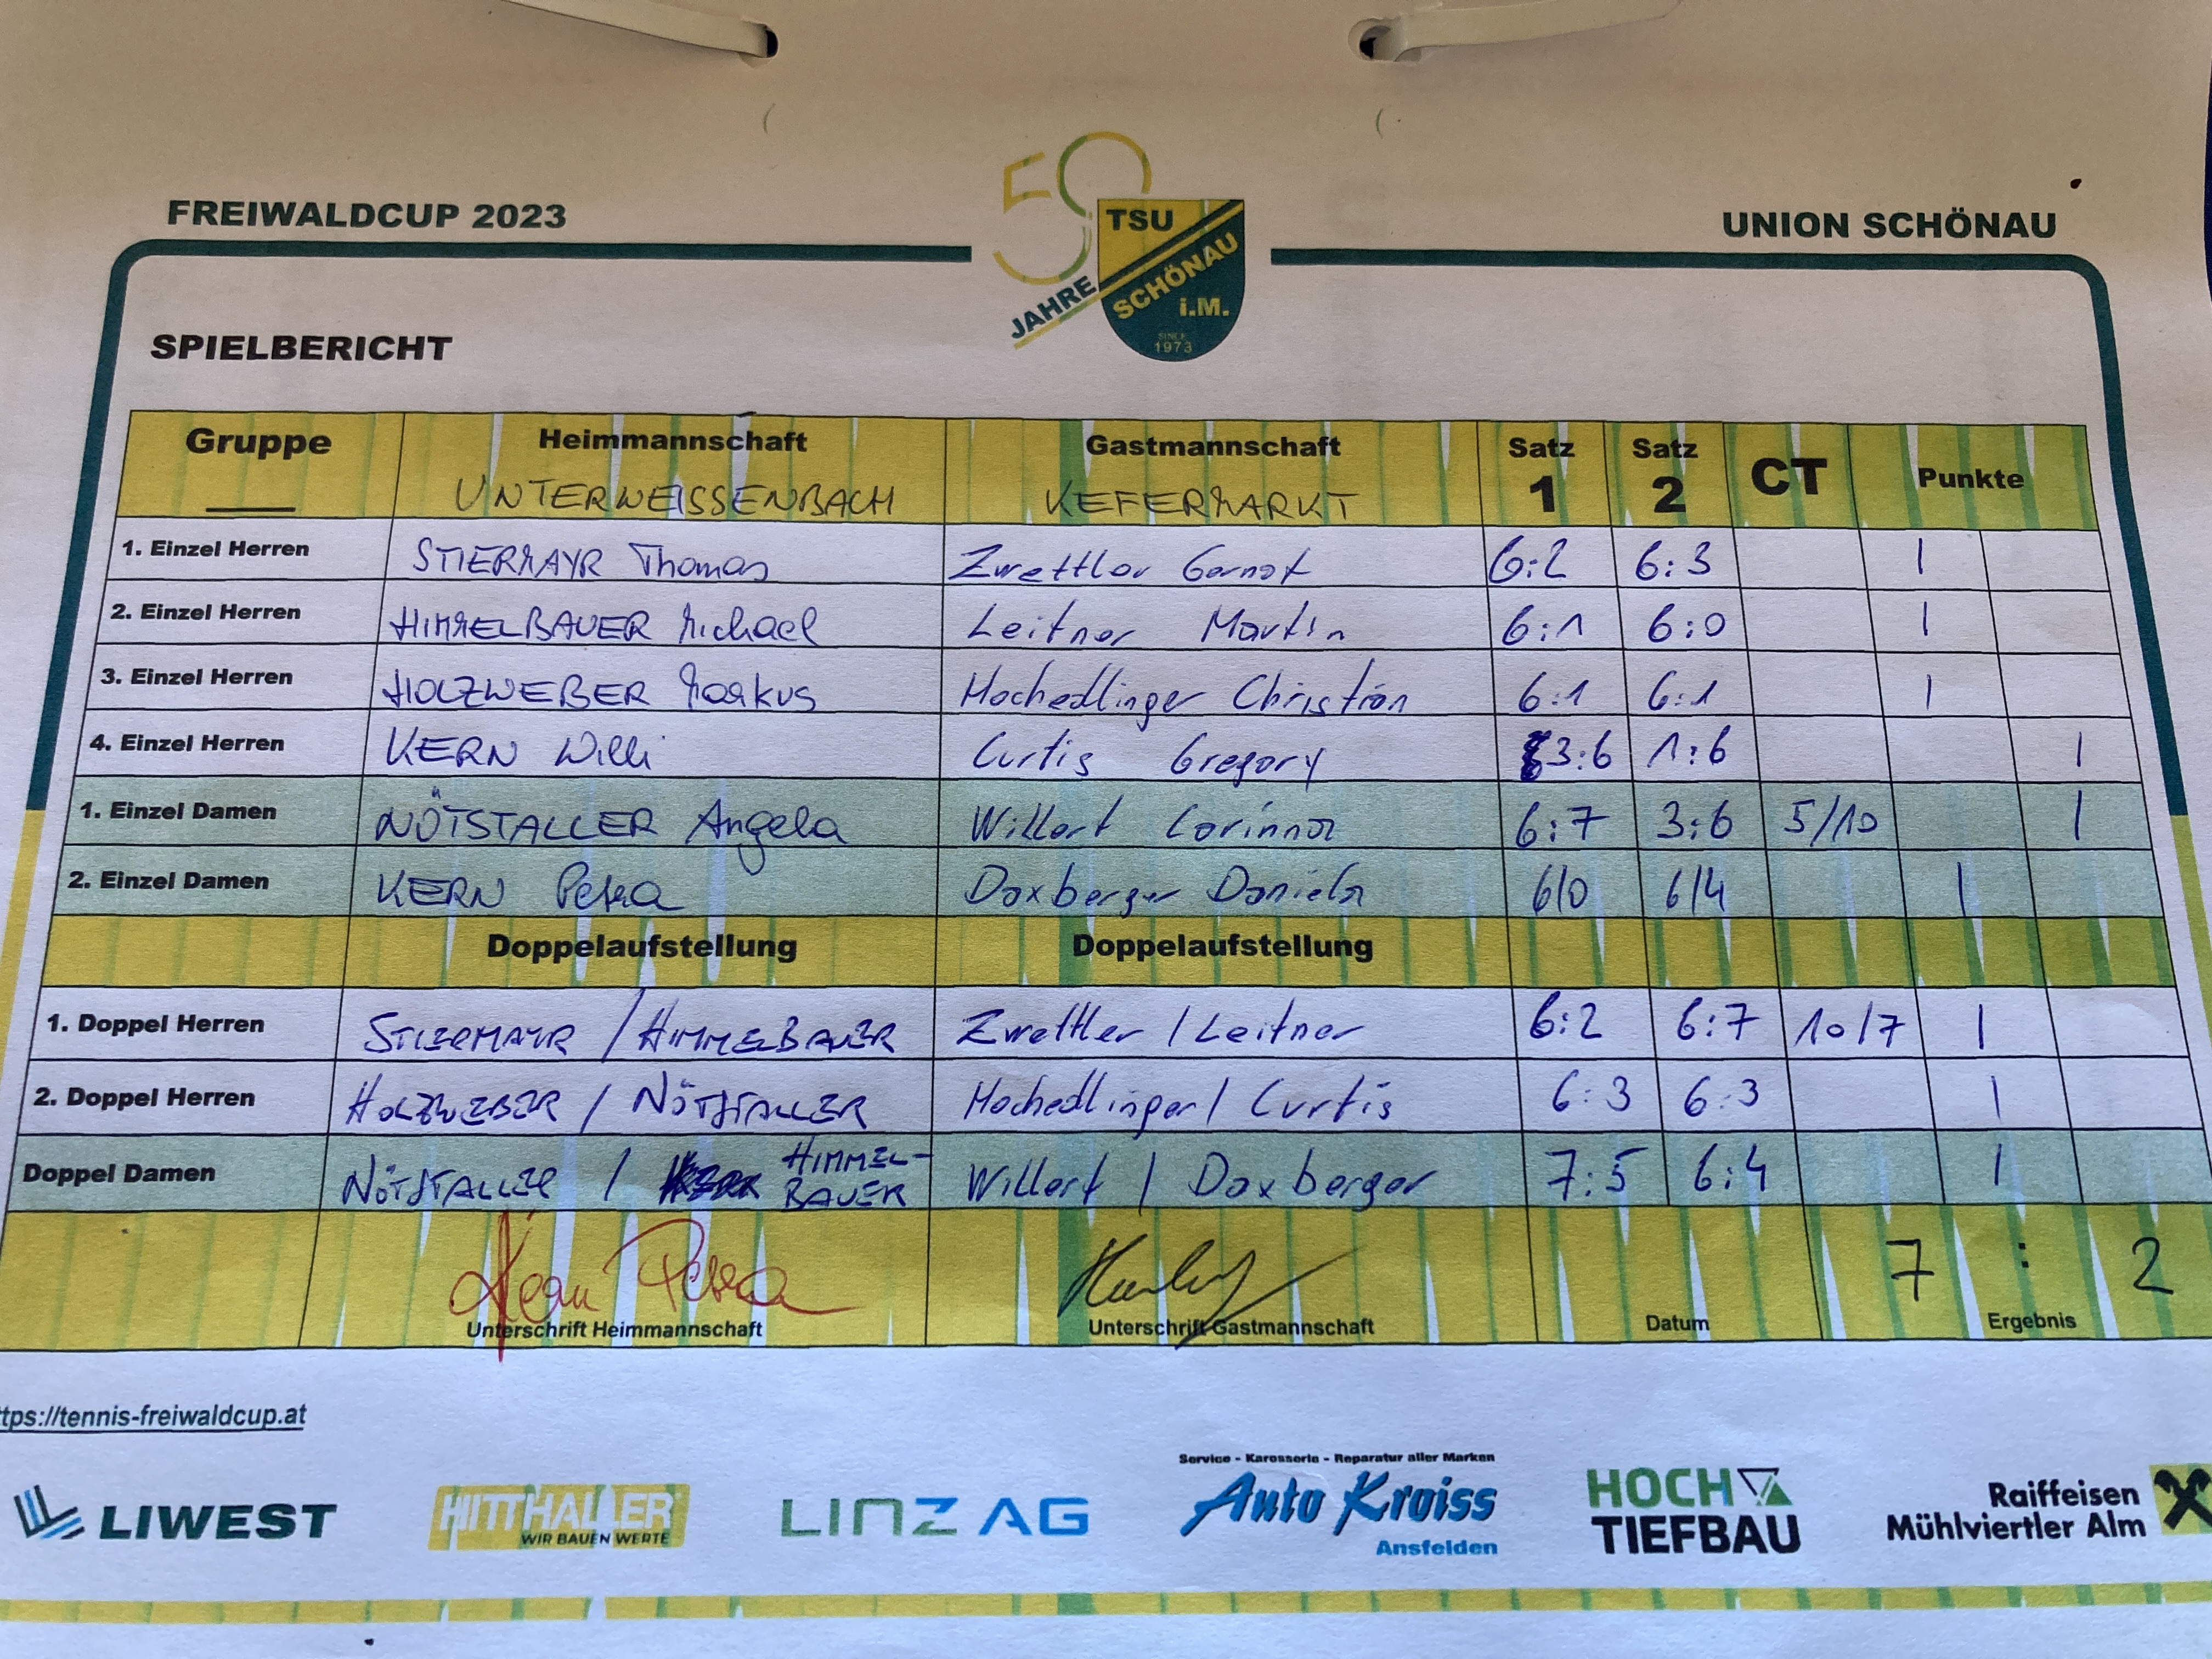 FREIWALDCUP 2023
50 JAHRE
TSU SCHÖNAU i.M.
SINCE 1973
UNION SCHÖNAU
SPIELBERICHT
Gruppe Heimmannschaft Gastmannschaft Satz 1 Satz 2 CT Punkte
UNTERWEISSENBACH KEFERMARKT
1. Einzel Herren STIERMAYR Thomas Zwettler Gernot 6:2 6:3 1
2. Einzel Herren HIMMELBAUER Michael Leitner Martin 6:1 6:0 1
3. Einzel Herren HOLZWEBER Markus Hochedlinger Christian 6:1 6:1 1
4. Einzel Herren KERN Willi Curtis Gregory 3:6 1:6 1
1. Einzel Damen NÖTSTALLER Angela Willert Corinna 6:7 3:6 5/10 1
2. Einzel Damen KERN Petra Daxberger Daniela 6/0 6/4 1
Doppelaufstellung Doppelaufstellung
1. Doppel Herren STIERMAYR / HIMMELBAUER Zwettler / Leitner 6:2 6:7 10/7 1
2. Doppel Herren HOLZWEBER / NÖTSTALLER Hochedlinger / Curtis 6:3 6:3 1
Doppel Damen NÖTSTALLER / HIMMEL-BAUER Willert / Daxberger 7:5 6:4 1
Kern Petra 7 : 2
Unterschrift Heimmannschaft Unterschrift Gastmannschaft Datum Ergebnis
ttps://tennis-freiwaldcup.at
LIWEST
HITTHALLER
WIR BAUEN WERTE
LINZ AG
Service - Karosserie - Reparatur aller Marken
Auto Kroiss
Ansfelden
HOCH
TIEFBAU
Raiffeisen
Mühlviertler Alm